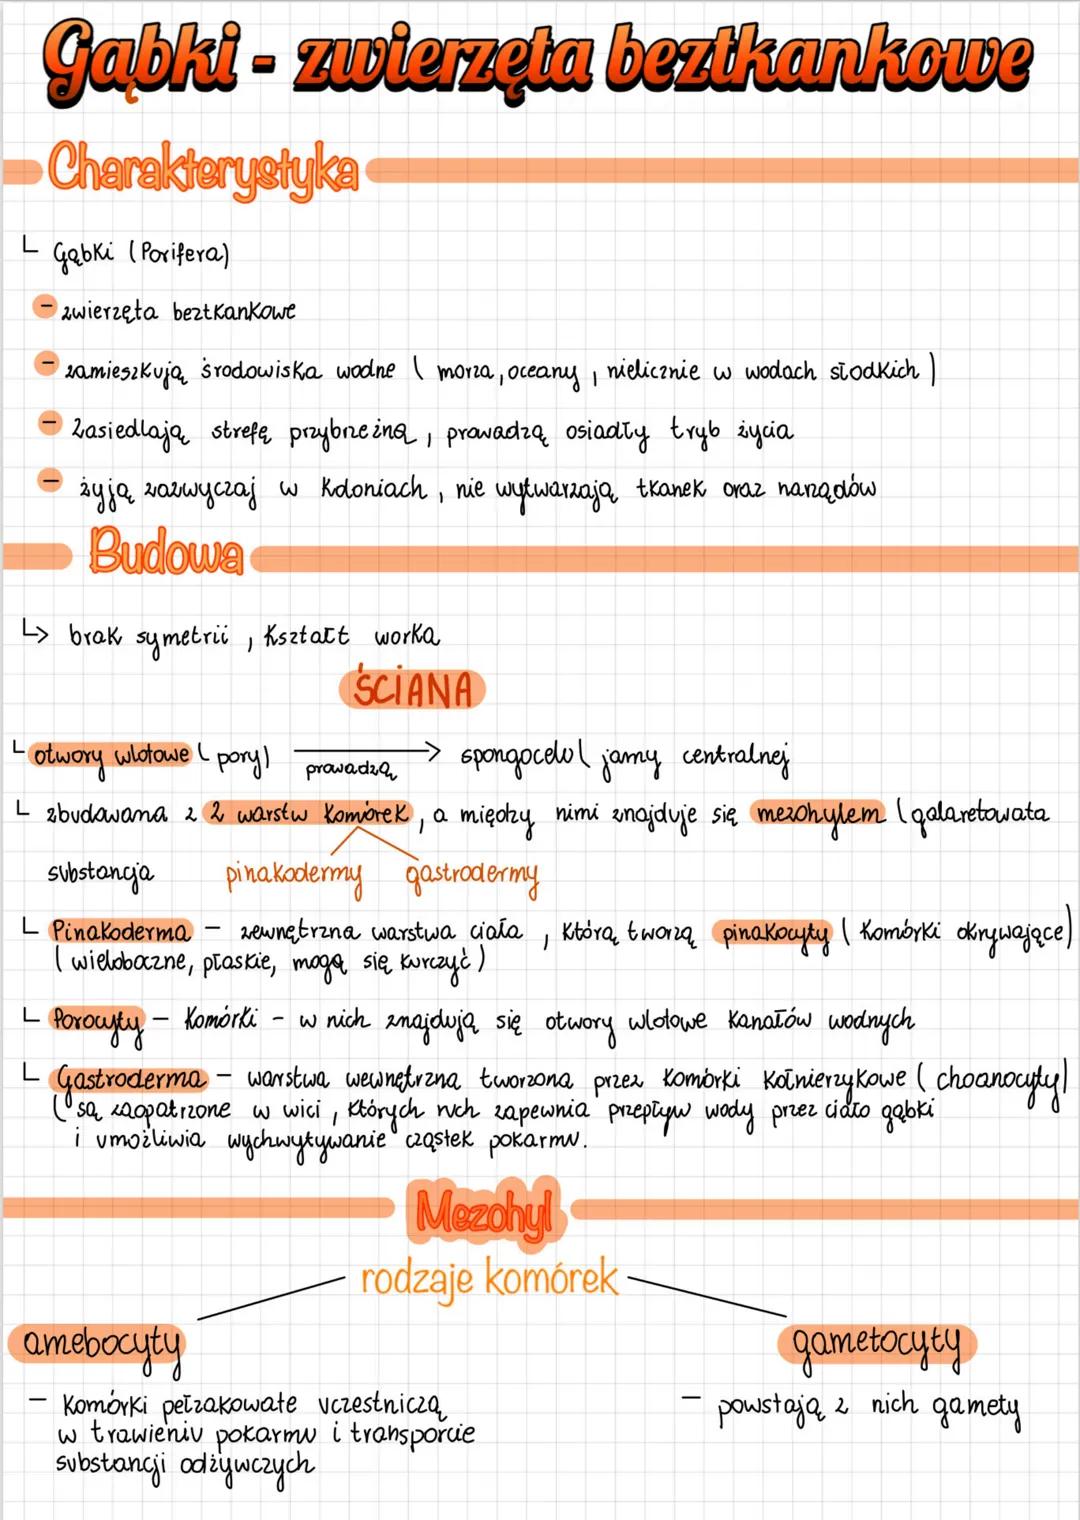 Gąbki - zwierzęta beztkankowe
Charakterystyka
Gąbki (Porifera)
- zwierzęta beztkankowe
- zamieszkują środowiska wodne ( morza, oceany, nielicznie w wodach słodkich )
- Zasiedlają strefę przybrzeżną, prowadzą osiadły tryb życia
- żyją zazwyczaj w koloniach, nie wytwarzają tkanek oraz narządów
Budowa
↳ brak symetrii, kształt worka
ŚCIANA
└ otwory wlotowe ( pory) prowadzą → spongocelu ( jamy centralnej
└ zbudowana z 2 warstw komórek, a między nimi znajduje się mezohylem ( galaretowata
substancja pinakodermy gastrodermy
└ Pinakoderma - zewnętrzna warstwa ciała, którą tworzą pinakocyty ( komórki okrywające)
( wieloboczne, płaskie, mogą się kurczyć )
└ Porocyty - komórki - w nich znajdują się otwory wlotowe kanałów wodnych
└ Gastroderma - warstwa wewnętrzna tworzona przez komórki kołnierzykowe ( choanocyty)
( są zaopatrzone w wici, których ruch zapewnia przepływ wody przez ciało gąbki
i umożliwia wychwytywanie cząstek pokarmu.
Mezohyl
rodzaje komórek
amebocyty gametocyty
- komórki pełzakowate uczestniczą - powstają z nich gamety
w trawieniu pokarmu i transporcie
substancji odżywczych